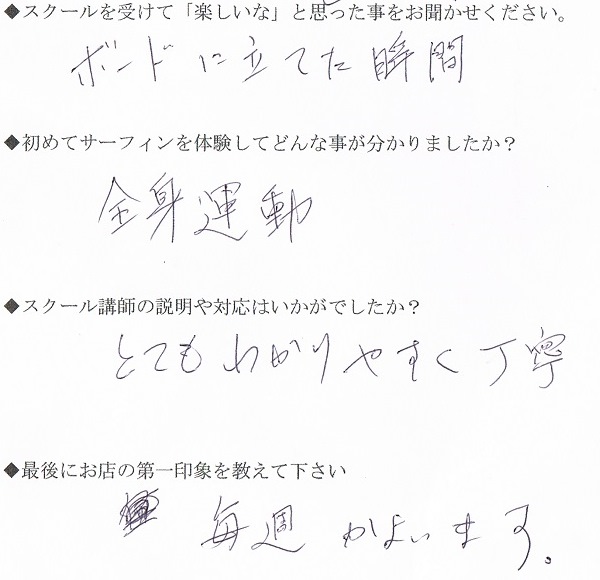 ◆スクールを受けて「楽しいな」と思った事をお聞かせください。
ボードに立てた瞬間
◆初めてサーフィンを体験してどんな事が分かりましたか？
全身運動
◆スクール講師の説明や対応はいかがでしたか？
とてもわかりやすく丁寧
◆最後にお店の第一印象を教えて下さい
毎週かよいます。